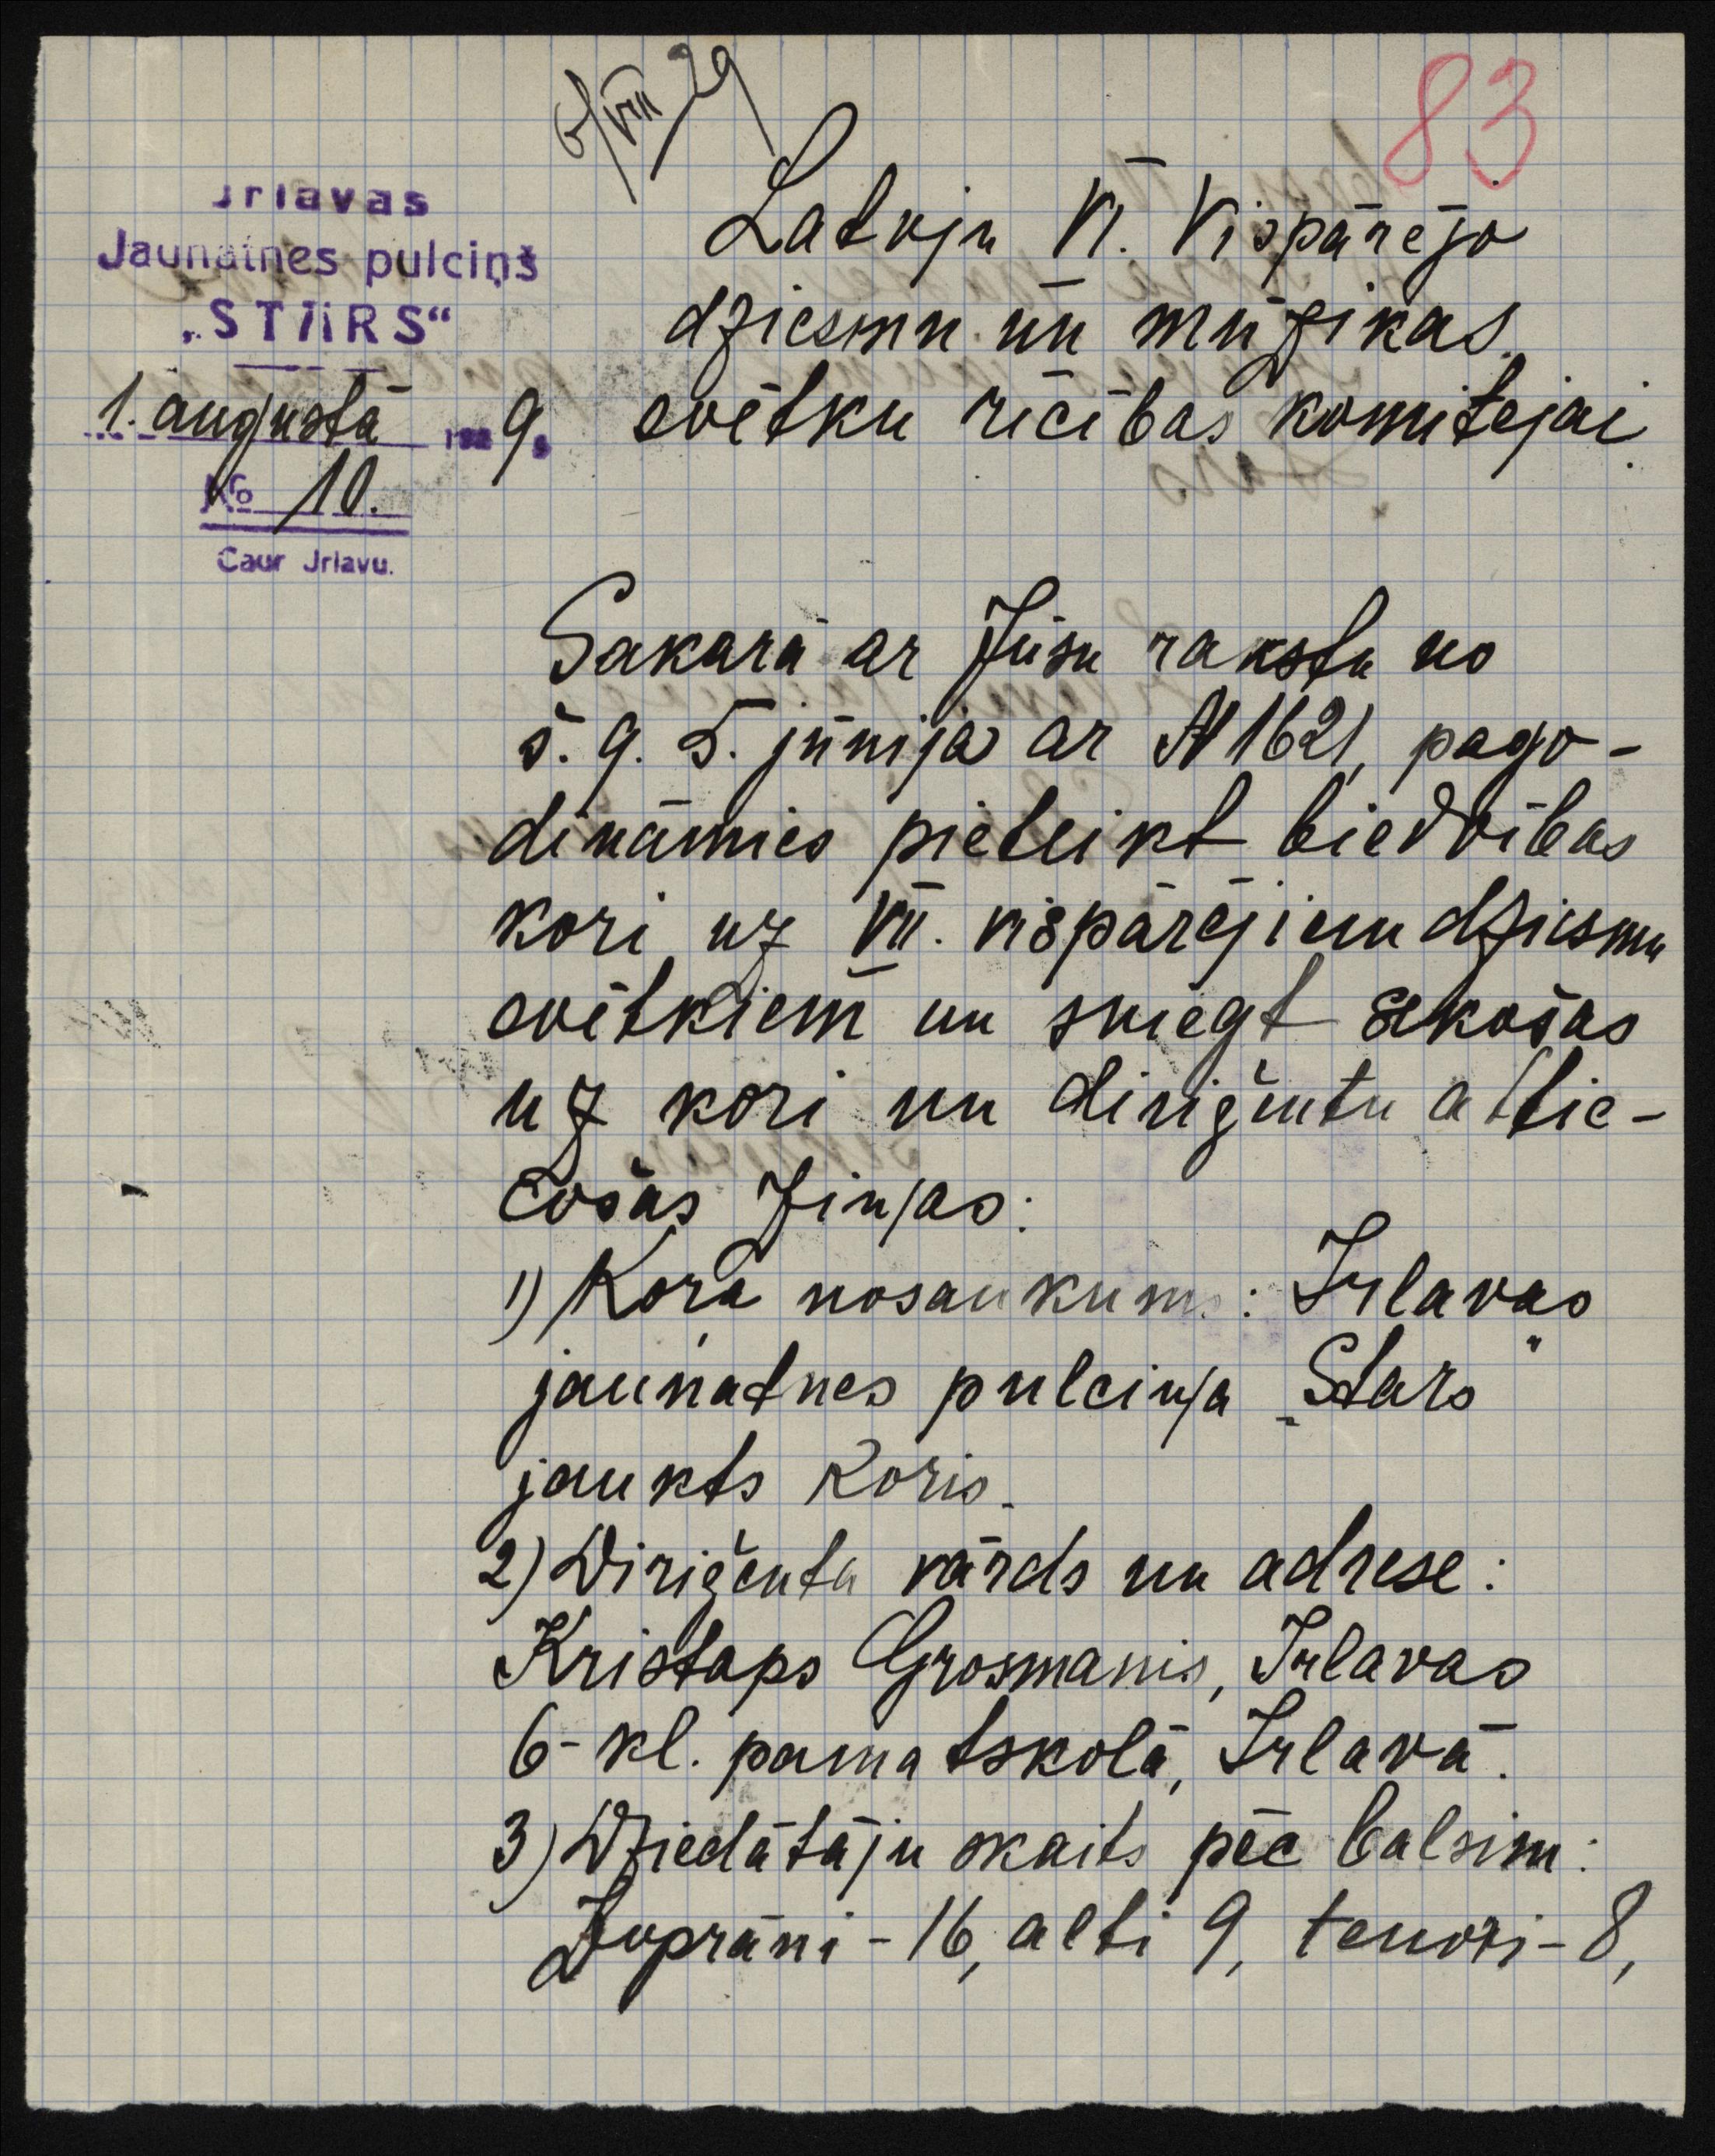 6/VIII 29
83
Irlavas
Jaunatnes pulciņš
„STARS“
1. augustā 1929.
№ 10.
Caur Jrlavu.
Latvju VI. Vispārējo
dziesmu un mūzikas
svētku rīcības komitejai.
Sakarā ar Jūsu rakstu no
š. g. 5. jūnija ar N 1621, pago-
dināmies pieteikt biedrības
kori uz VII. vispārējiem dziesmu
svētkiem un sniegt sekošas
uz kori un diriģentu attie-
cošās ziņas:
1) Kora nosaukums: Irlavas
jaunatnes pulciņa „Stars"
jaukts koris.
2) Diriģenta vārds un adrese:
Kristaps Grosmanis, Irlavas
6-kl. pamatskolā, Irlavā.
3) Dziedātāju skaits pēc balsim:
Soprāni - 16, alti 9, tenori - 8,